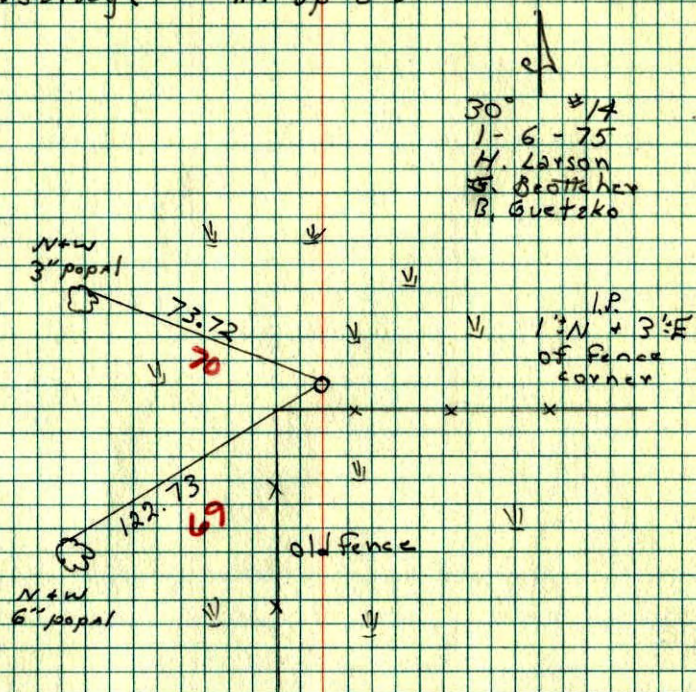 30° #14
1 - 6 - 75
H. Larson
G. Beottcher
B. Guetzko
N+W
3" popal
73.72
70
I.P.
1'±N + 3'±E
of fence
corner
122.73
69
old fence
N+W
6" popal